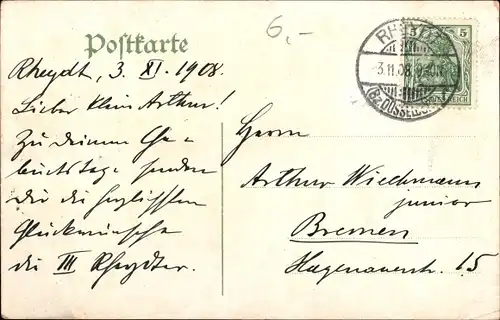 Postkarte
6,-
Rheydt, 3. XI. 1908.
Lieber klein Arthur!
Zu deinem Ge-
burtstage senden
dir die herzlichsten
Glückwünsche
die III Rheydter.
RHEYDT
3.11.08.
(Bz. DÜSSELD.)
5
Herrn
Arthur Wiechmann
junior
Bremen
Hagenauerstr. 15